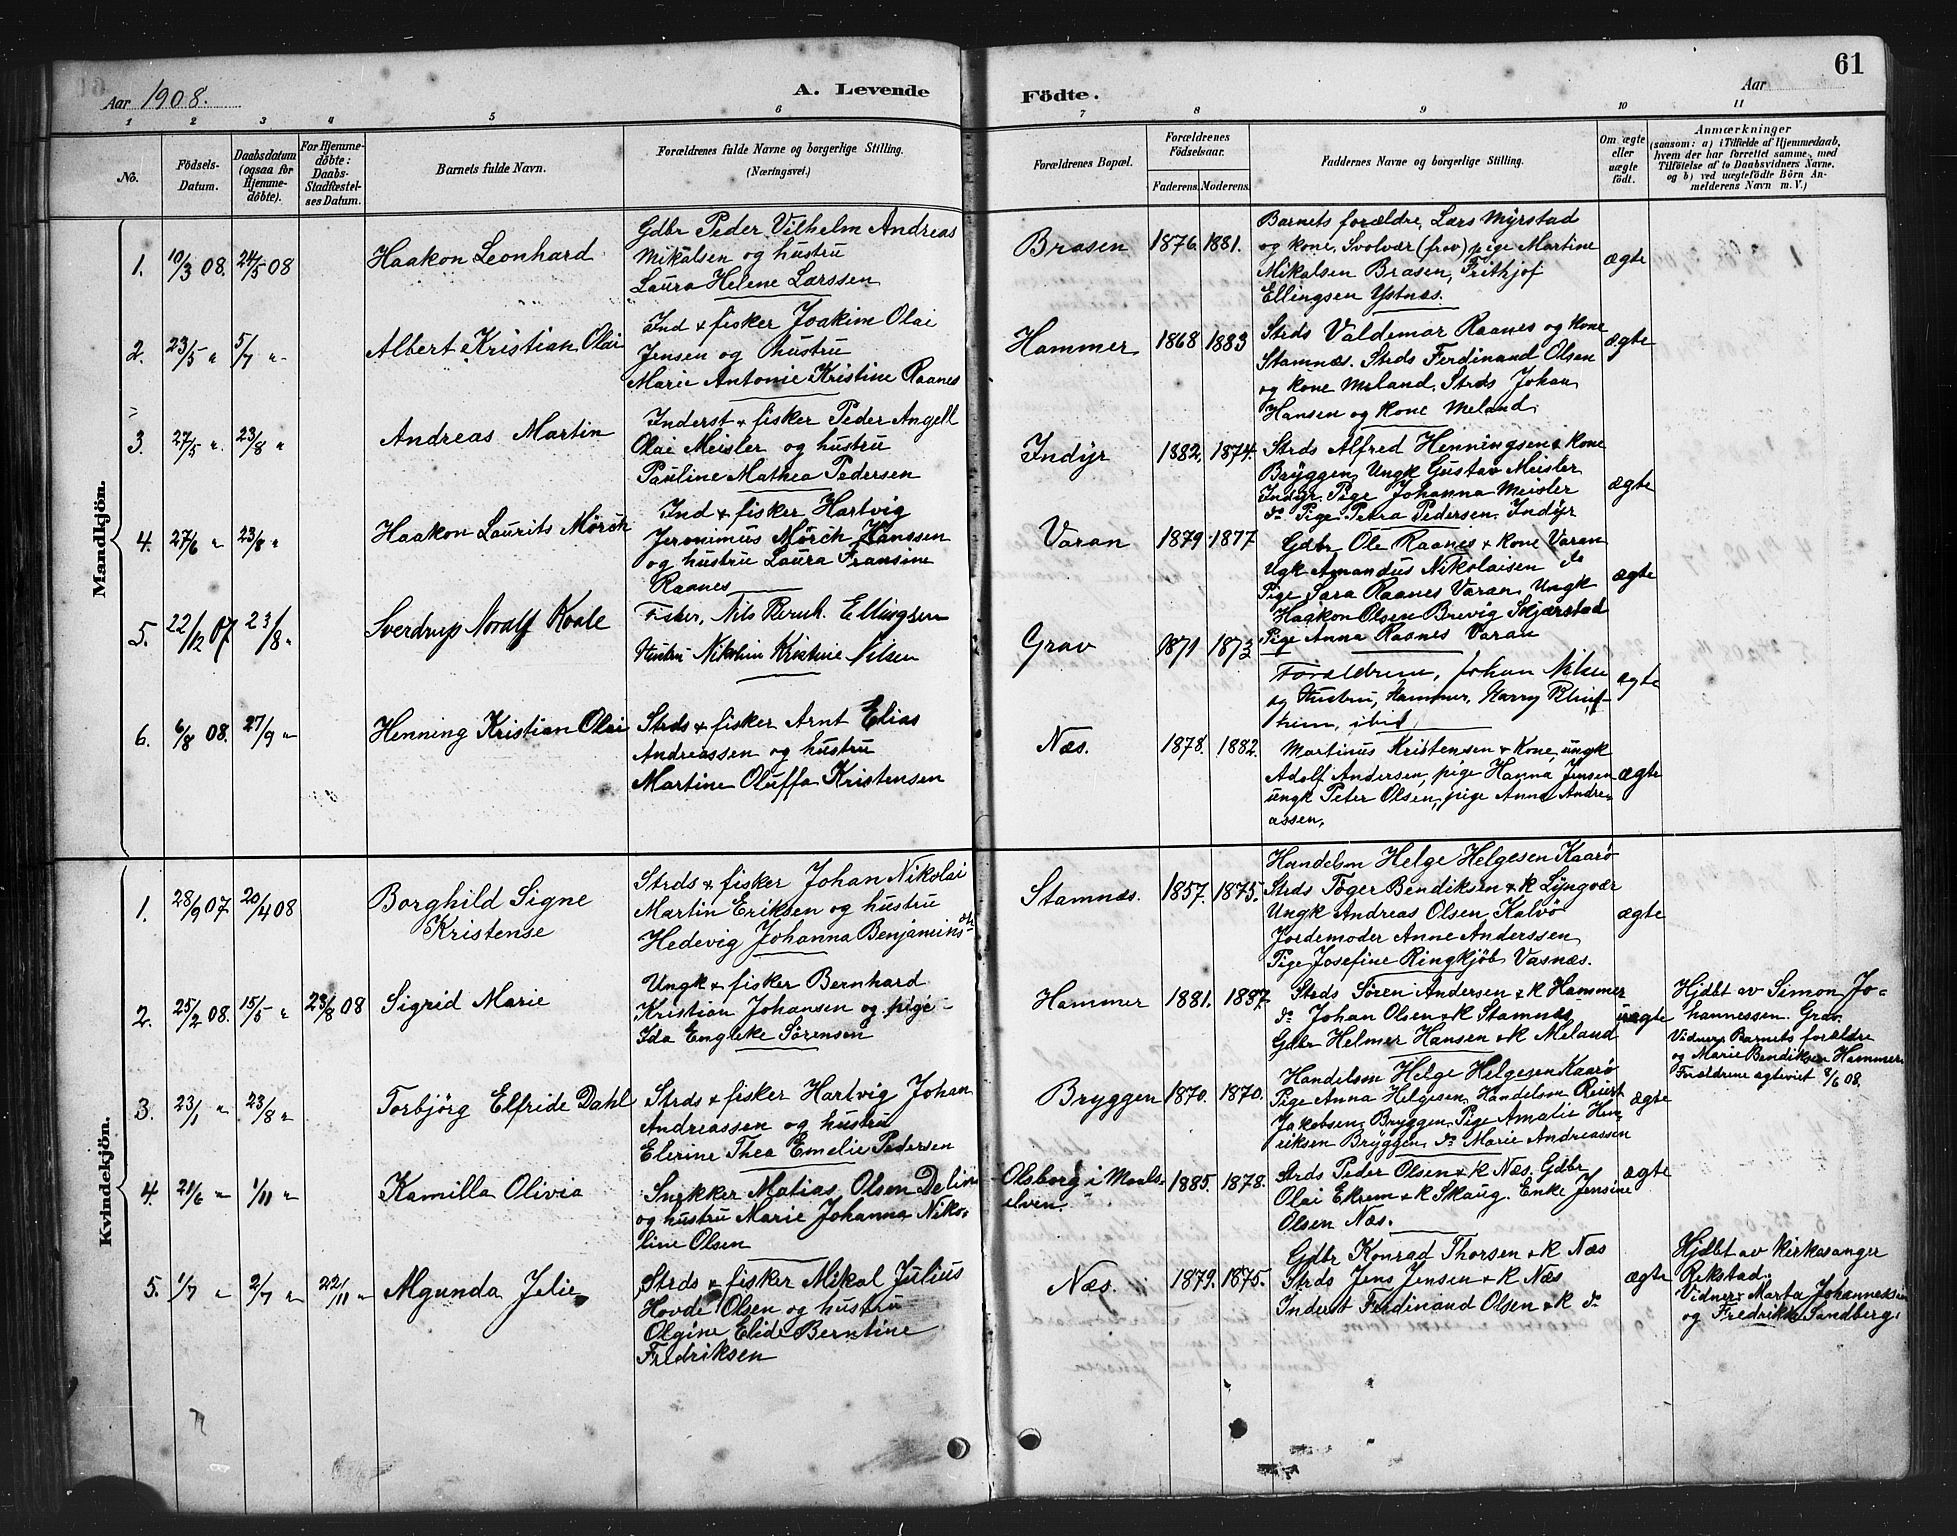 61
Aar 1908.
A. Levende
Födte.
Aar
1 2 3 4 5 6 7 8 9 10 11
No.
Födsels-
Datum.
Daabsdatum
(ogsaa for
Hjemme-
döbte).
For Hjemme-
döbte:
Daabs-
Stadfæstel-
ses Datum.
Barnets fulde Navn.
Forældrenes fulde Navne og borgerlige Stilling.
(Næringsvei.)
Forældrenes Bopæl.
Forældrenes
Födselsaar.
Faderens. Moderens.
Faddernes Navne og borgerlige Stilling.
Om ægte
eller
uægte
födt.
Anmærkninger
(saasom: a) i Tilfælde af Hjemmedaab,
hvem der har forrettet samme, med
Tilföielse af to Daabsvidners Navne.
og b) ved uægtefödte Börn An-
melderens Navn m. V.)
Mandkjön.
1. 10/3 08. 24/5 08
Haakon Leonhard
Gdbr Peder Vilhelm Andreas
Mikalsen og hustru
Laura Helene Larssen
Brasen 1876. 1881.
Barnets forældre, Lars Myrstad
og kone, Svolvær (frav) pige Martine
Mikalsen Brasen, Frithjof
Ellingsen Ystnæs.
ægte
2. 23/5 " 5/7 "
Albert Kristian Olai
Ind & fisker Joakim Olai
Jensen og hustru
Marie Antonie Kristine Raanes
Hammer 1868 1883
Strds Valdemar Raanes og kone
Stamnæs. Strds Ferdinand Olsen
og kone Meland. Strds Johan
Hansen og kone Meland.
ægte
3. 27/5 " 23/8 "
Andreas Martin
Inderst & fisker Peder Angell
Olai Meisler og hustru
Pauline Mathea Pedersen
Indyr 1882. 1874.
Strds Alfred Henningsen & kone
Bryggen, Ungk Gustav Meisler
Indyr. Pige Johanna Meisler
do. Pige Petra Pedersen. Indyr
ægte
4. 27/6 " 23/8 "
Haakon Laurits Mørch
Ind & fisker Hartvig
Jeronimus Mørch Hanssen
og hustru Laura Fransine
Raanes
Varan 1879 1877
Gdbr Ole Raanes & kone Varan
Ugk Amandus Nikolaisen do
Pige Sara Raanes Varan, Ungk
Haakon Olsen Brevig Skjærstad
Pige Anna Raanes Varan
ægte
5. 22/12 07 23/8 "
Sverdrup Noralf Koale
Fisker, Nils Ellingsen
Hustru Nikolin Kristine Nilsen
Grav 1871 1873
Forældrene, Johan Nilsen
og Hustru, Hammer, Harry
heim, ibid
ægte
6. 6/8 08. 27/9 "
Henning Kristian Olai
Strds & fisker Arnt Elias
Andreassen og hustru
Martine Oluffa Kristensen
Næs. 1878. 1882.
Martinus Kristensen & Kone, ungk
Adolf Andersen, pige Hanna Jensen
ungk Peter Olsen, pige Anna Andre-
assen,
ægte
Kvindekjön.
1. 28/9 07. 20/4 08
Borghild Signe
Kristense
Strds & fisker Johan Nikolai
Martin Eriksen og hustru
Hedevig Johanna Benjamins-
Stamnæs. 1857. 1875.
Handelsm Helge Helgesen Kaarø
Strds Töger Bendiksen & K Lyngvær
Ungk Andreas Olsen, Kalvö
Jordemoder Anne Anderssen
Pige Josefine Ringkjöb Vasnæs.
ægte
2. 25/2 08. 15/5 " 23/8 08
Sigrid Marie
Ungk & fisker Bernhard
Kristian Johansen og pige
Ida Engleke Sörensen
Hammer 1881. 1887.
Strds Sören Andersen & K Hammer
do Johan Olsen & K Stamnæs
Gdbr Helmer Hansen & K Meland
uægte
Hjdbt av Simon Jo-
hannessen. Grav.
Vidner Barnets forældre
og Marie Bendiksen Hammer.
Forældrene agteviet 8/6 08.
3. 23/1 " 23/8 "
Torbjörg Elfride Dahl
Strds & fisker Hartvig Johan
Andreassen og hustru
Elerine Thea Emelie Pedersen
Bryggen 1870. 1870.
Handelsm Helge Helgesen Kaarö
Pige Anna Helgesen, Handelsm Reiert
Jakobsen, Bryggen, Pige Amalie Hen-
riksen Bryggen, do Marie Andreassen
ægte
4. 21/6 " 1/11 "
Kamilla Olivia
Snekker Matias Olsen Delin
og hustru Marie Johanna Niko-
line Olsen
Olsborg i Maals-
elven. 1885. 1878.
Strds Peder Olsen & K Næs. Gdbr
Olai Ekrem & K Skaug. Enke Jensine
Olsen Næs.
ægte
5. 1/7 " 2/7 " 22/11 "
Magunda Jelie
Strds & fisker Mikal Julius
Hovde Olsen og hustru
Olgine Elide Berntine
Fredriksen
Næs. 1879. 1875.
Gdbr Konrad Thorsen & K Næs
Strds Jens Jensen & K Næs
Inderst Ferdinand Olsen & K do
ægte
Hjdbt av Kirkesanger
Rekstad.
Vidner: Marta Johannesen
og Fredrikke Sandberg.